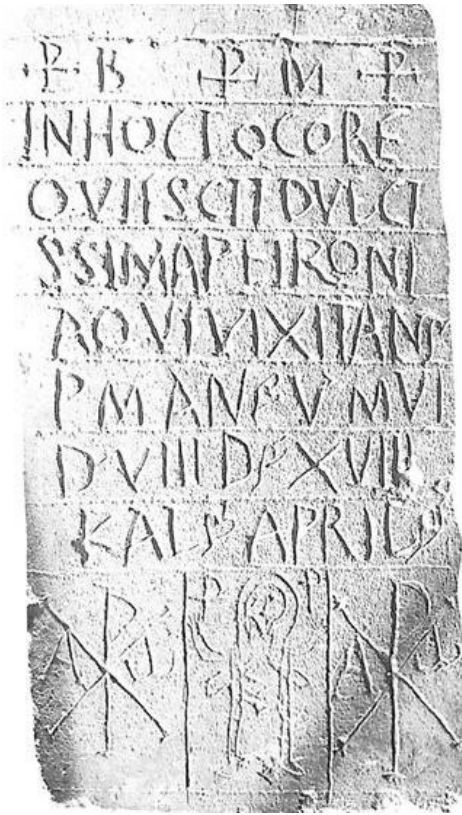 ⳨ B ⳨ M ⳨
INHOCLOCORE
QVIESCIT DVLCI
SSIMAPETRONI
AQVIVIXITANS
P M ANS V MVI
D VIII DS XVIII
KALS APRILS
A ☧ ω ⳨ ⳨ A ☧ ω